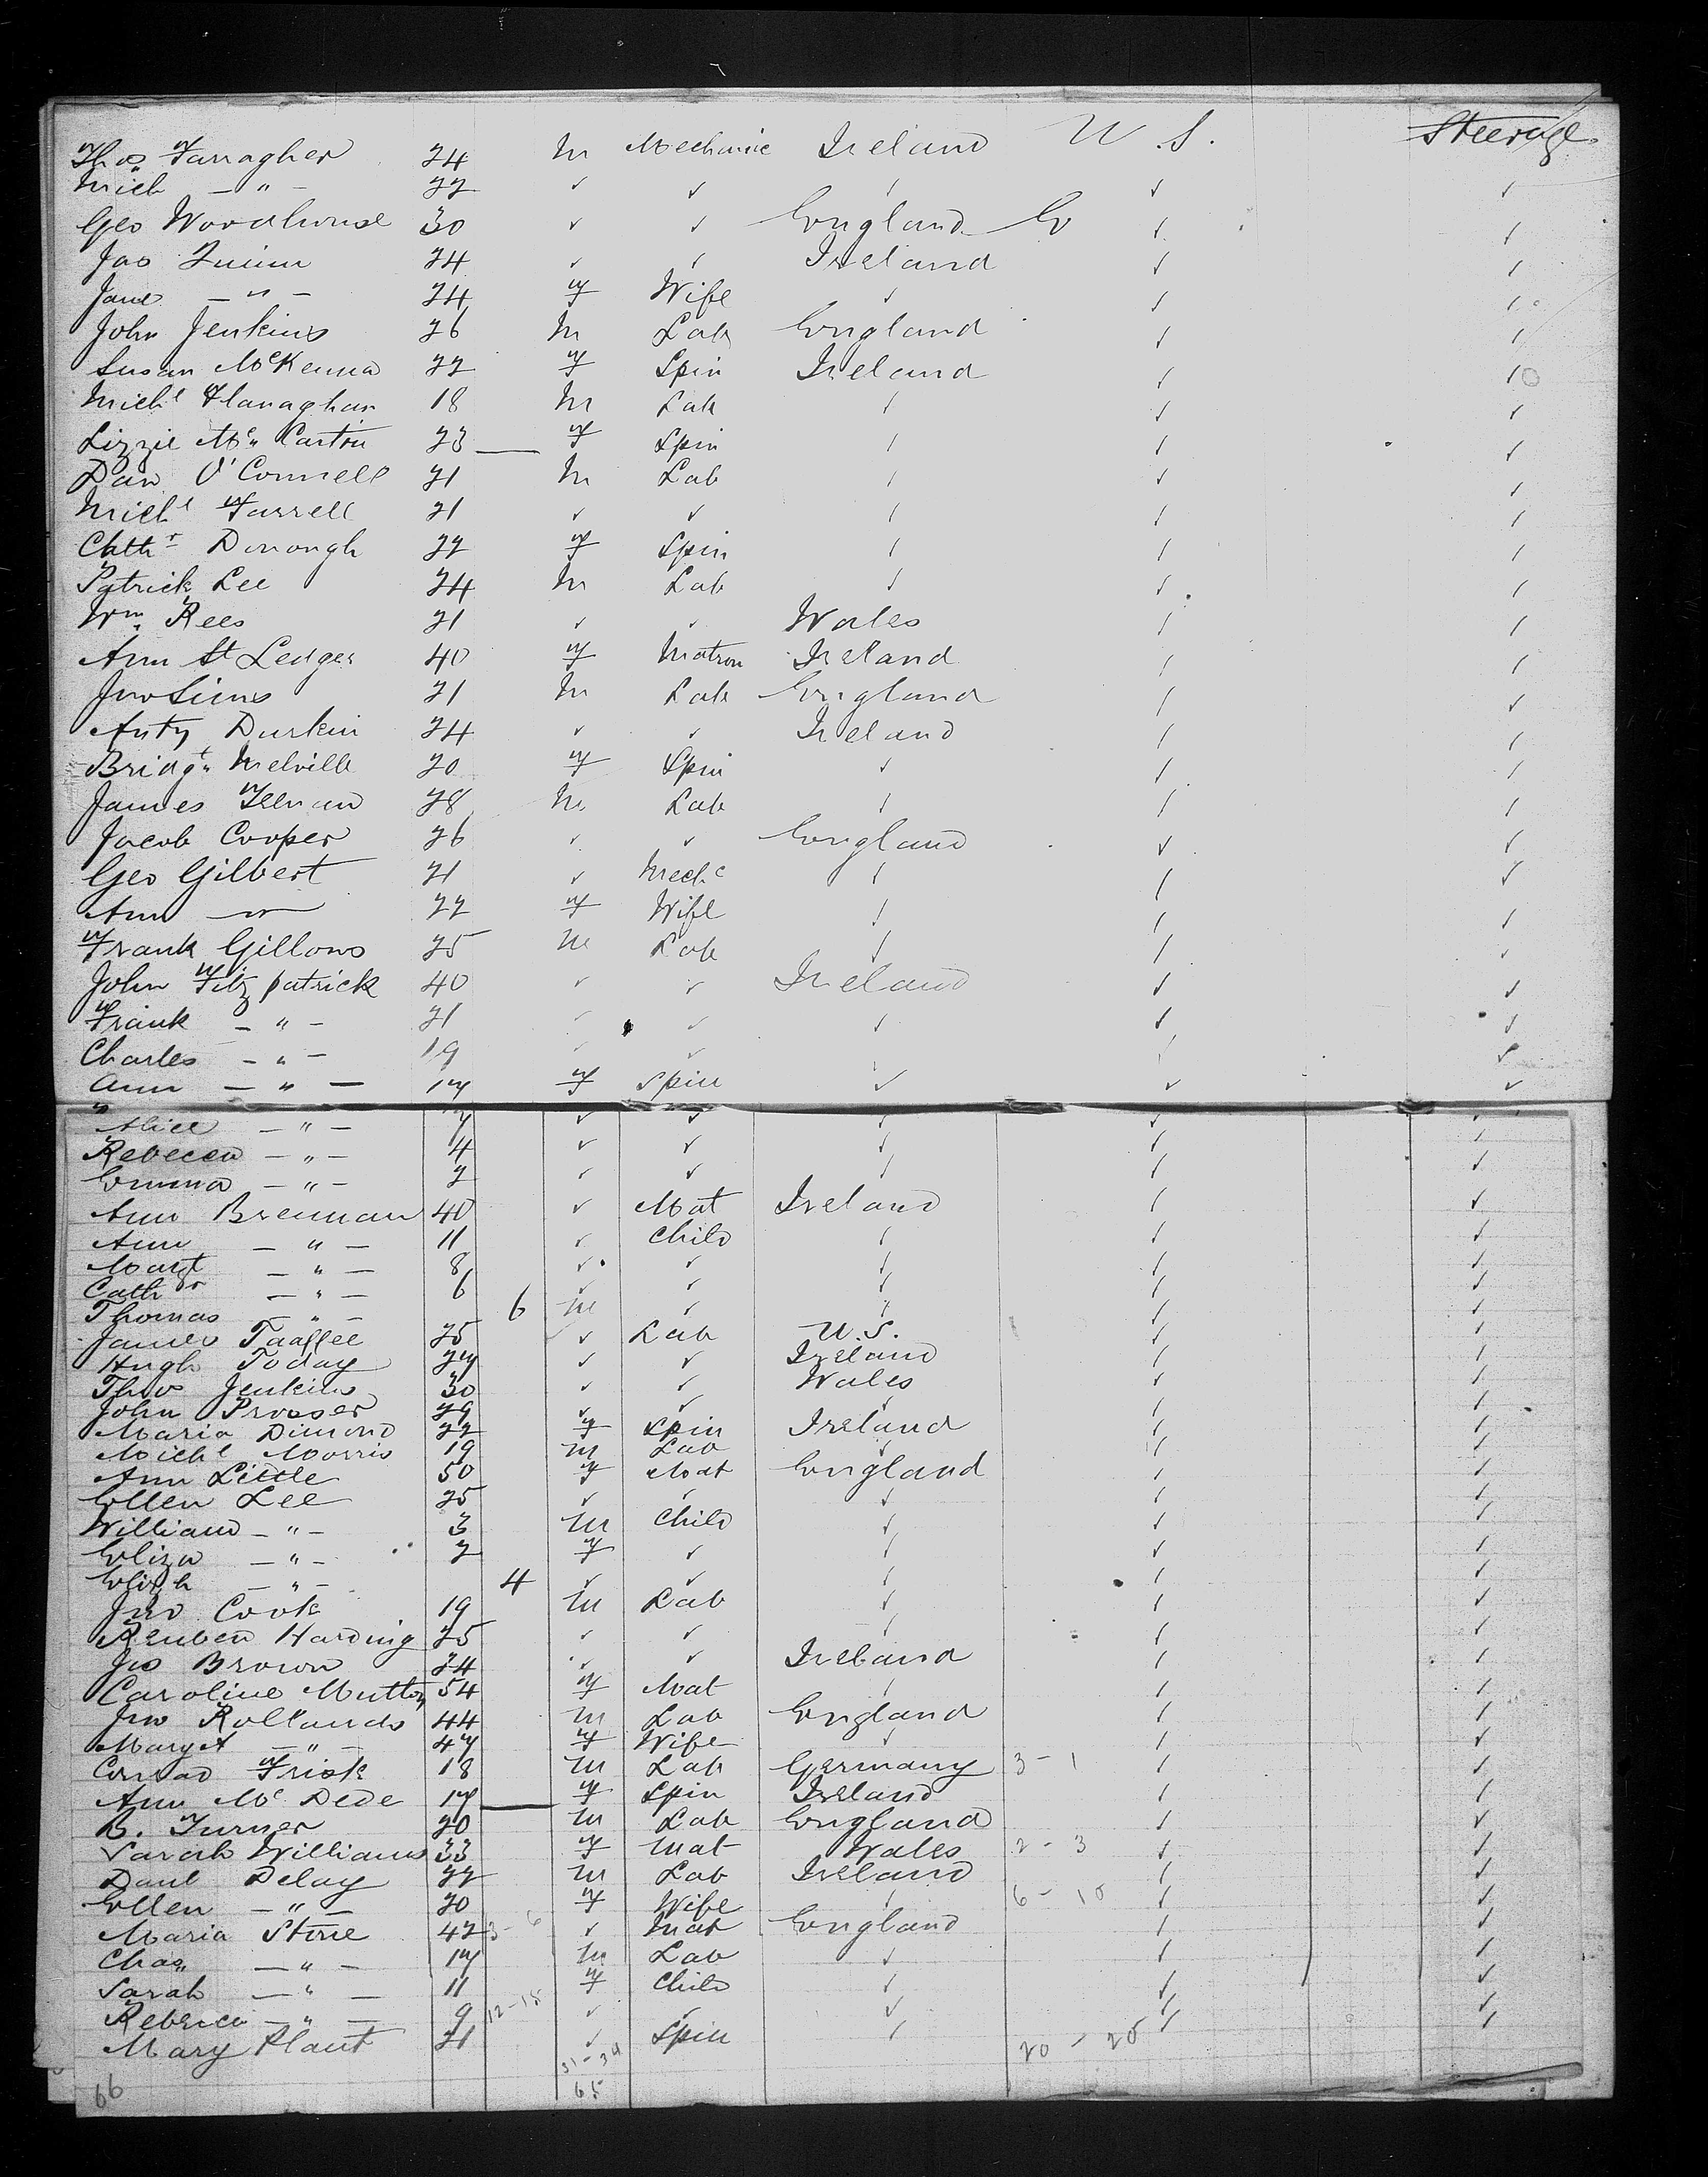 Thos Farragher 24 m Mechanic Ireland U.S. Steerage
Mich — " — 22 ✓ ✓ ✓ ✓ ✓
Geo Woodhouse 30 ✓ ✓ England ✓ ✓
Jas Quinn 24 ✓ ✓ Ireland ✓ ✓
Jane — " — 24 f Wife ✓ ✓ ✓
John Jenkins 26 m Lab England ✓ ✓
Susan McKenna 22 f Spin Ireland ✓ ✓
Michl Flanaghan 18 m Lab ✓ ✓ ✓
Lizzie Mc Carton 23 — f Spin ✓ ✓ ✓
Dan O'Connell 21 m Lab ✓ ✓ ✓
Michl Farrell 21 ✓ ✓ ✓ ✓ ✓
Cathr Donough 22 f Spin ✓ ✓ ✓
Patrick Lee 24 m Lab ✓ ✓ ✓
Wm Rees 21 ✓ ✓ Wales ✓ ✓
Ann St Ledger 40 f Matron Ireland ✓ ✓
Jno Sims 21 m Lab England ✓ ✓
Anty Durkin 24 ✓ ✓ Ireland ✓ ✓
Bridgt Melville 20 f Spin ✓ ✓ ✓
James 28 m Lab ✓ ✓ ✓
Jacob Cooper 26 ✓ ✓ England ✓ ✓
Geo Gilbert 21 ✓ Mechc ✓ ✓ ✓
Ann — " — 22 f Wife ✓ ✓ ✓
Frank Gillows 25 m Lab ✓ ✓ ✓
John Fitzpatrick 40 ✓ ✓ Ireland ✓ ✓
Frank — " — 21 ✓ ✓ ✓ ✓ ✓
Charles — " — 19 ✓ ✓ ✓ ✓ ✓
Ann — " — 17 f Spin ✓ ✓ ✓
Alice — " — 7 ✓ ✓ ✓ ✓ ✓
Rebecca — " — 4 ✓ ✓ ✓ ✓ ✓
Emma — " — 2 ✓ ✓ ✓ ✓ ✓
Ann Brennan 40 ✓ Mat Ireland ✓ ✓
Ann — " — 11 ✓ Child ✓ ✓ ✓
Margt — " — 8 ✓ ✓ ✓ ✓ ✓
Cathr — " — 6 ✓ ✓ ✓ ✓ ✓
Thomas — " — 6 m ✓ ✓ ✓ ✓
James Taaffee 25 ✓ Lab U.S. ✓ ✓
Hugh Today 27 ✓ ✓ Ireland ✓ ✓
Thos Jenkins 30 ✓ ✓ Wales ✓ ✓
John Prosser 29 ✓ ✓ ✓ ✓ ✓
Maria Dimond 22 f Spin Ireland ✓ ✓
Michl Morris 19 m Lab ✓ ✓ ✓
Ann Little 50 f Mat England ✓ ✓
Ellen Lee 25 ✓ ✓ ✓ ✓ ✓
William — " — 3 m Child ✓ ✓ ✓
Eliza — " — 2 f ✓ ✓ ✓ ✓
Elizh — " — 4 ✓ ✓ ✓ ✓ ✓
Jno Cook 19 m Lab ✓ ✓ ✓
Reuben Harding 25 ✓ ✓ ✓ ✓ ✓
Jno Brown 24 ✓ ✓ Ireland ✓ ✓
Caroline Mutton 54 f Mat ✓ ✓ ✓
Jno Rollands 44 m Lab England ✓ ✓
Mary A — " — 47 f Wife ✓ ✓ ✓
Conrad Frisk 18 m Lab Germany 3 - 1 ✓ ✓
Ann Mc Dede 17 — f Spin Ireland ✓ ✓
B. Turner 20 m Lab England ✓ ✓
Sarah Williams 33 f Mat Wales 2 - 3 ✓ ✓
Danl Delay 22 m Lab Ireland ✓ ✓
Ellen — " — 20 f Wife ✓ 6 - 10 ✓ ✓
Maria Stone 42 3 - 6 ✓ Mat England ✓ ✓
Chas — " — 17 m Lab ✓ ✓ ✓
Sarah — " — 11 f Child ✓ ✓ ✓
Rebecca — " — 9 12-15 ✓ ✓ ✓ ✓ ✓
Mary Plant 21 ✓ Spin ✓ 20 - 25 ✓ ✓
31-34
66 65